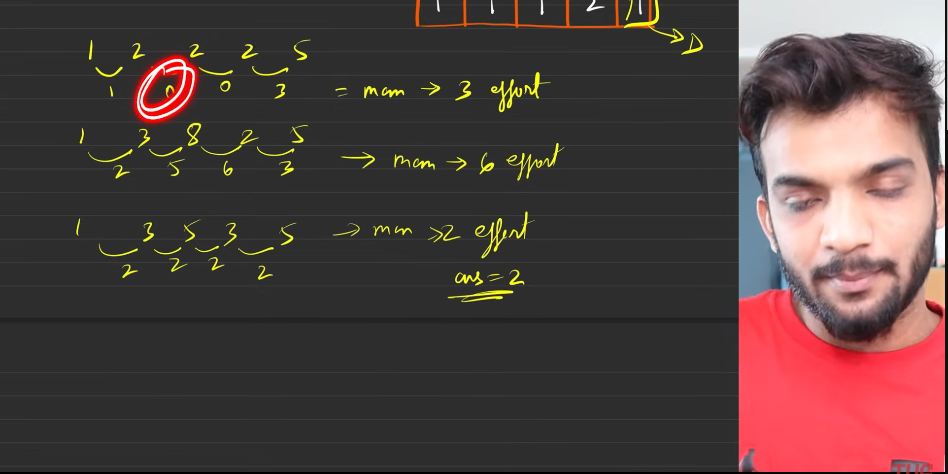 1 1 1 2 1
→ D
1 2 2 2 5
1 0 0 3 = max → 3 effort
1 3 8 2 5
2 5 6 3 → max → 6 effort
1 3 5 3 5 → max → 2 effort
2 2 2 2
ans = 2